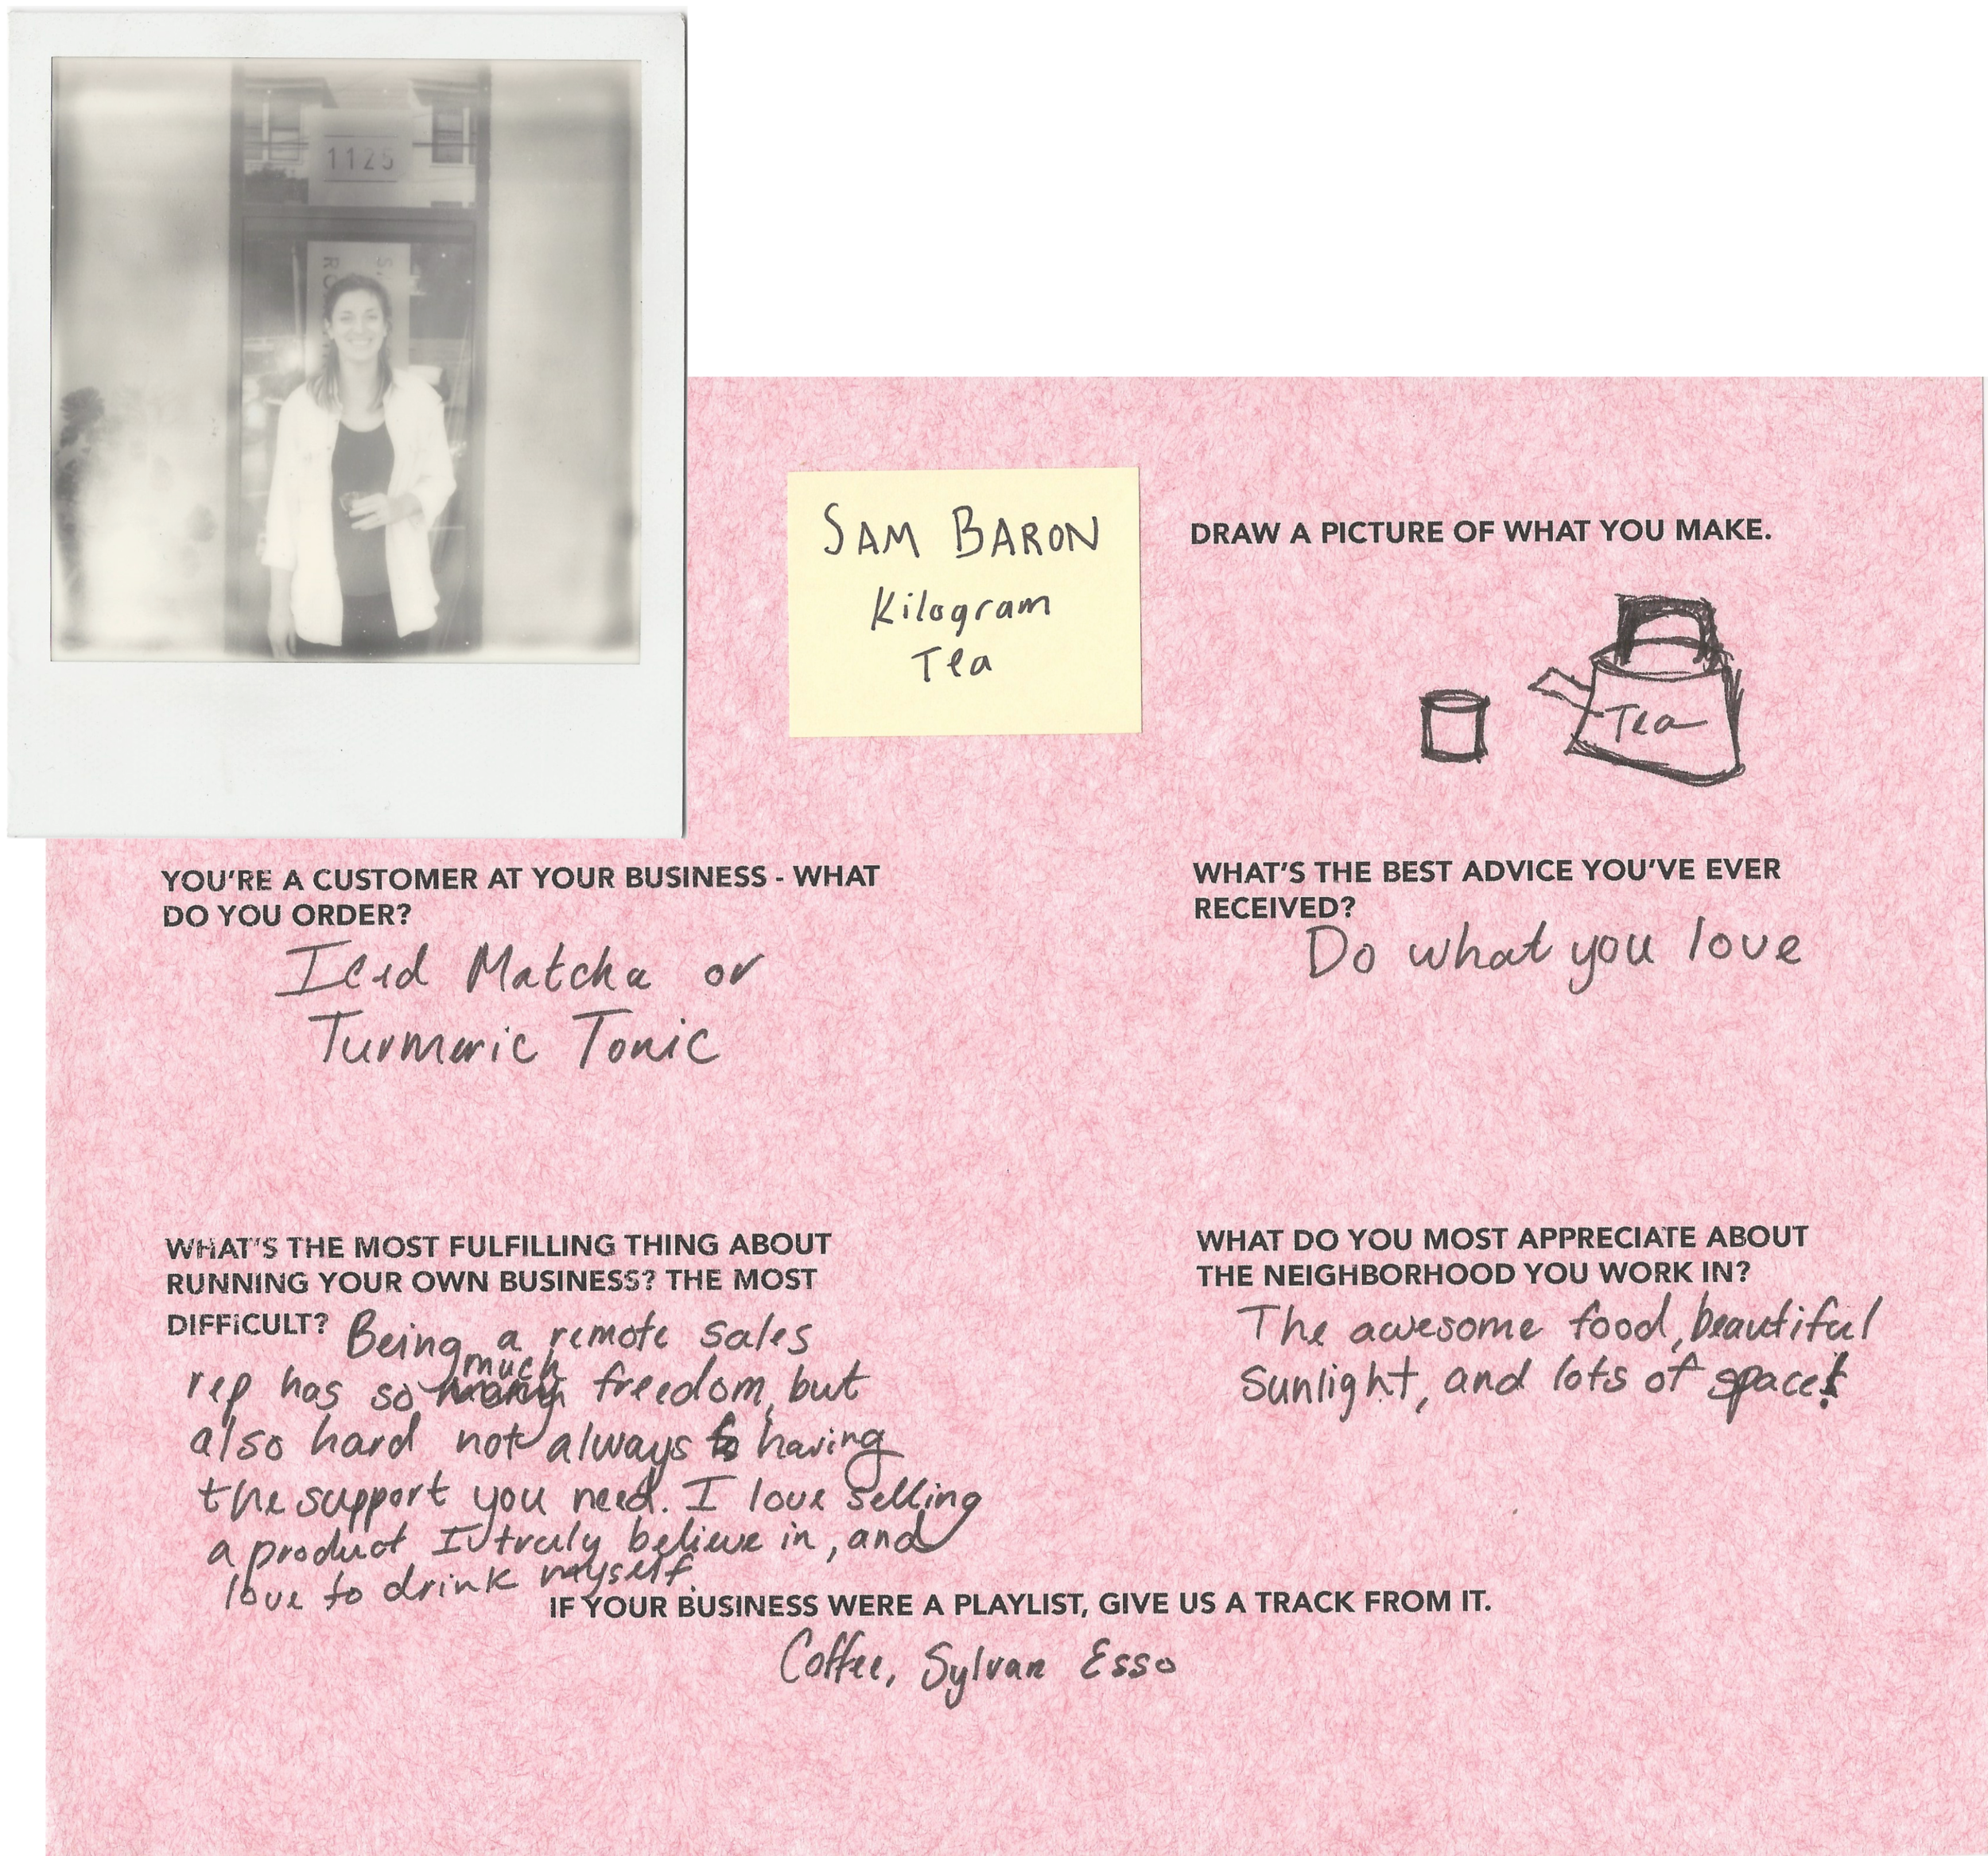 1125
S.
RO
SAM BARON
Kilogram
Tea
DRAW A PICTURE OF WHAT YOU MAKE.
Tea
YOU'RE A CUSTOMER AT YOUR BUSINESS - WHAT
DO YOU ORDER?
Iced Matcha or
Turmeric Tonic
WHAT'S THE BEST ADVICE YOU'VE EVER
RECEIVED?
Do what you love
WHAT'S THE MOST FULFILLING THING ABOUT
RUNNING YOUR OWN BUSINESS? THE MOST
DIFFICULT? Being a remote sales
rep has so much freedom, but
also hard not always having
the support you need. I love selling
a product I truly believe in, and
love to drink myself.
WHAT DO YOU MOST APPRECIATE ABOUT
THE NEIGHBORHOOD YOU WORK IN?
The awesome food, beautiful
sunlight, and lots of space!
IF YOUR BUSINESS WERE A PLAYLIST, GIVE US A TRACK FROM IT.
Coffee, Sylvan Esso